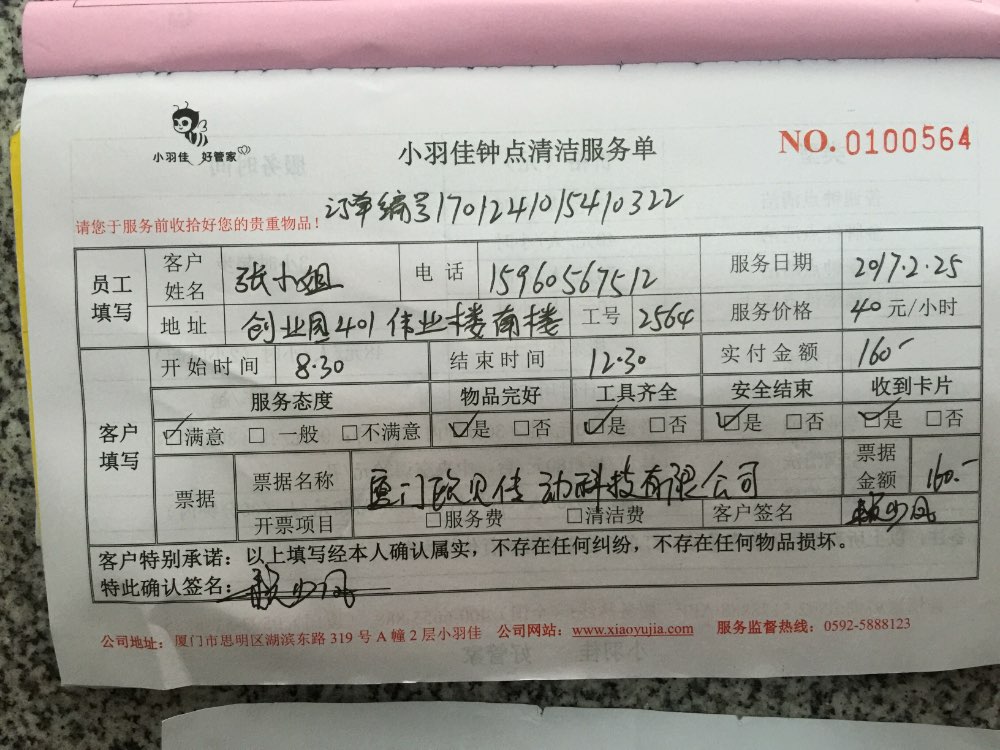 小羽佳 好管家
小羽佳钟点清洁服务单
NO. 0100564
订单编号1701241015410322
请您于服务前收拾好您的贵重物品！
员工填写 客户姓名 张小姐 电话 15960567512 服务日期 2017.2.25
地址 创业园401伟业楼南楼 工号 2564 服务价格 40 元/小时
客户填写 开始时间 8.30 结束时间 12.30 实付金额 160-
服务态度 物品完好 工具齐全 安全结束 收到卡片
☑满意 □一般 □不满意 ☑是 □否 ☑是 □否 ☑是 □否 ☑是 □否
票据 票据名称 厦门欧贝传动科技有限公司 票据金额 160.-
开票项目 □服务费 □清洁费 客户签名
客户特别承诺：以上填写经本人确认属实，不存在任何纠纷，不存在任何物品损坏。
特此确认签名：
公司地址：厦门市思明区湖滨东路 319 号 A 幢 2 层小羽佳 公司网站：www.xiaoyujia.com 服务监督热线：0592-5888123